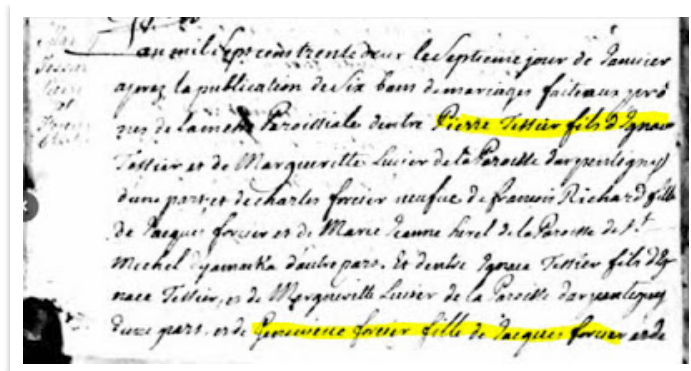 Lan mil sept cens trente deux le septieme jour de Janvier
aprez la publication de six bans de mariages faites aux prô
nes de la Paroissiale dentre Pierre Tessier fils d'Ignace
Tessier et de Margueritte Lusier de la Paroisse
dune part et de charles forcier de francois Richard fille
de Jacques forcier et de Marie Jeanne hirel de la Paroisse de St
Michel dyamaska dautre part. Et dentre Ignace Tessier fils dIg
nace Tessier, et de Margueritte Lusier de la Paroisse
dune part, et de Genevieve forcier fille de Jacques forcier et de